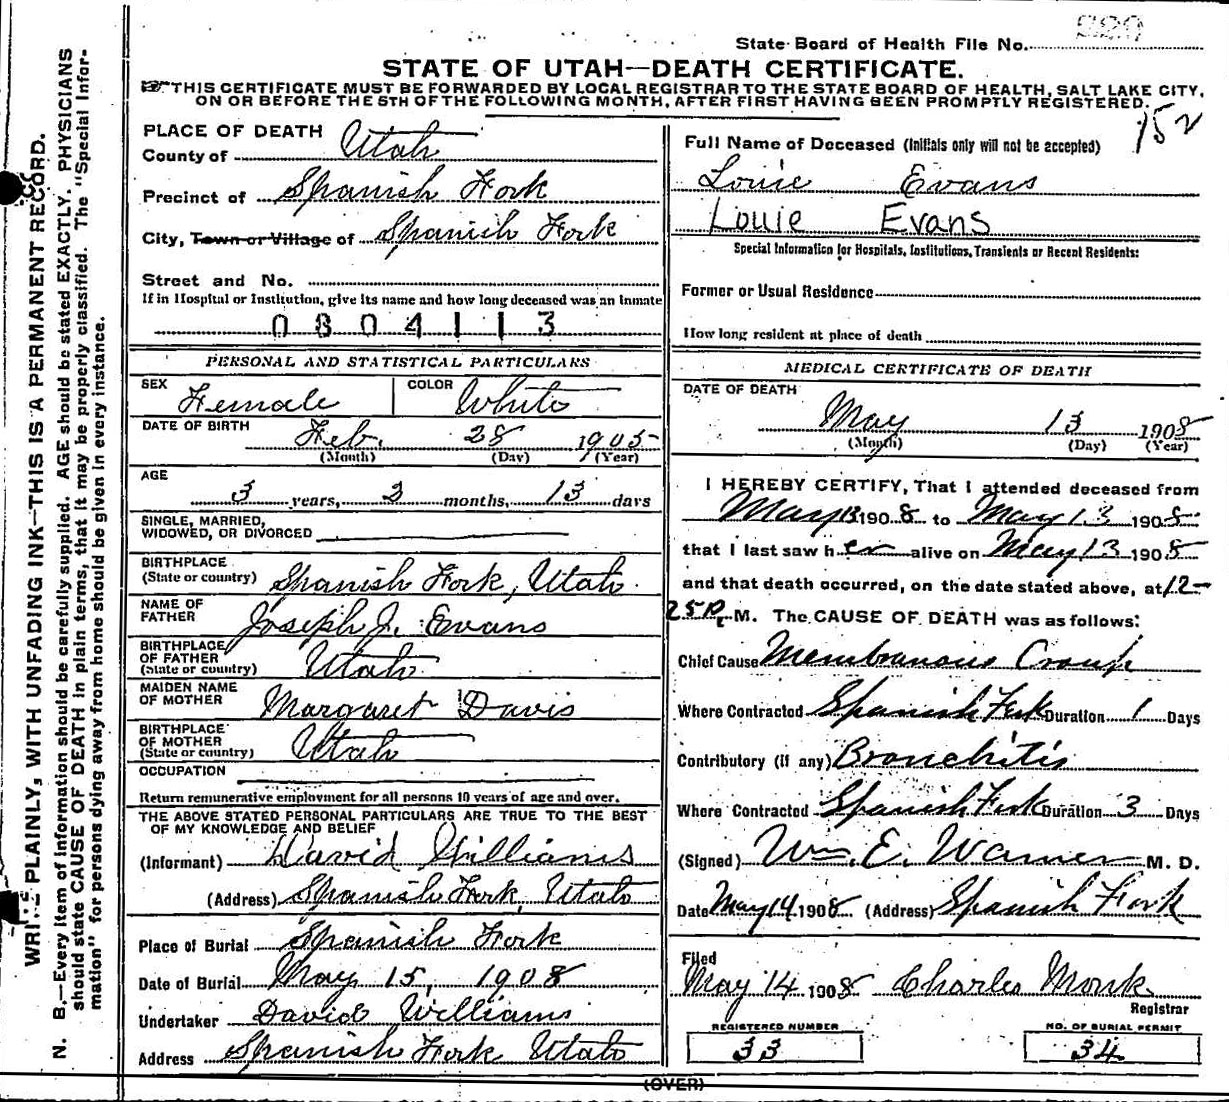 State Board of Health File No.
STATE OF UTAH—DEATH CERTIFICATE.
THIS CERTIFICATE MUST BE FORWARDED BY LOCAL REGISTRAR TO THE STATE BOARD OF HEALTH, SALT LAKE CITY,
ON OR BEFORE THE 5TH OF THE FOLLOWING MONTH, AFTER FIRST HAVING BEEN PROMPTLY REGISTERED.
WRITE PLAINLY, WITH UNFADING INK—THIS IS A PERMANENT RECORD.
N. B.—Every item of information should be carefully supplied. AGE should be stated EXACTLY. PHYSICIANS
should state CAUSE OF DEATH in plain terms, that it may be properly classified. The "Special Infor-
mation" for persons dying away from home should be given in every instance.
PLACE OF DEATH
County of Utah
Precinct of Spanish Fork
City, Town or Village of Spanish Fork
Street and No.
If in Hospital or Institution, give its name and how long deceased was an inmate
0804113
PERSONAL AND STATISTICAL PARTICULARS
SEX Female COLOR White
DATE OF BIRTH Feb. 28 1905
(Month) (Day) (Year)
AGE
3 years, 2 months, 13 days
SINGLE, MARRIED,
WIDOWED, OR DIVORCED
BIRTHPLACE
(State or country) Spanish Fork, Utah.
NAME OF
FATHER Joseph J. Evans
BIRTHPLACE
OF FATHER
(State or country) Utah
MAIDEN NAME
OF MOTHER Margaret Davis
BIRTHPLACE
OF MOTHER
(State or country) Utah
OCCUPATION
Return remunerative employment for all persons 10 years of age and over.
THE ABOVE STATED PERSONAL PARTICULARS ARE TRUE TO THE BEST
OF MY KNOWLEDGE AND BELIEF
(Informant) David Williams
(Address) Spanish Fork, Utah
Place of Burial Spanish Fork
Date of Burial May 15, 1908
Undertaker David Williams
Address Spanish Fork Utah
152
Full Name of Deceased (Initials only will not be accepted)
Louie Evans
Louie Evans
Special Information for Hospitals, Institutions, Transients or Recent Residents:
Former or Usual Residence
How long resident at place of death
MEDICAL CERTIFICATE OF DEATH
DATE OF DEATH
May 13 1908
(Month) (Day) (Year)
I HEREBY CERTIFY, That I attended deceased from
May 13 1908 to May 13 1908
that I last saw her alive on May 13 1908
and that death occurred, on the date stated above, at 12-
25 P. M. The CAUSE OF DEATH was as follows:
Chief Cause Membranous Croup
Where Contracted Spanish Fork Duration 1 Days
Contributory (if any) Bronchitis
Where Contracted Spanish Fork Duration 3 Days
(Signed) Wm. E. Warner M. D.
Date May 14 1908 (Address) Spanish Fork
Filed
May 14 1908 Charles Monk
Registrar
REGISTERED NUMBER NO. OF BURIAL PERMIT
33 34
(OVER)